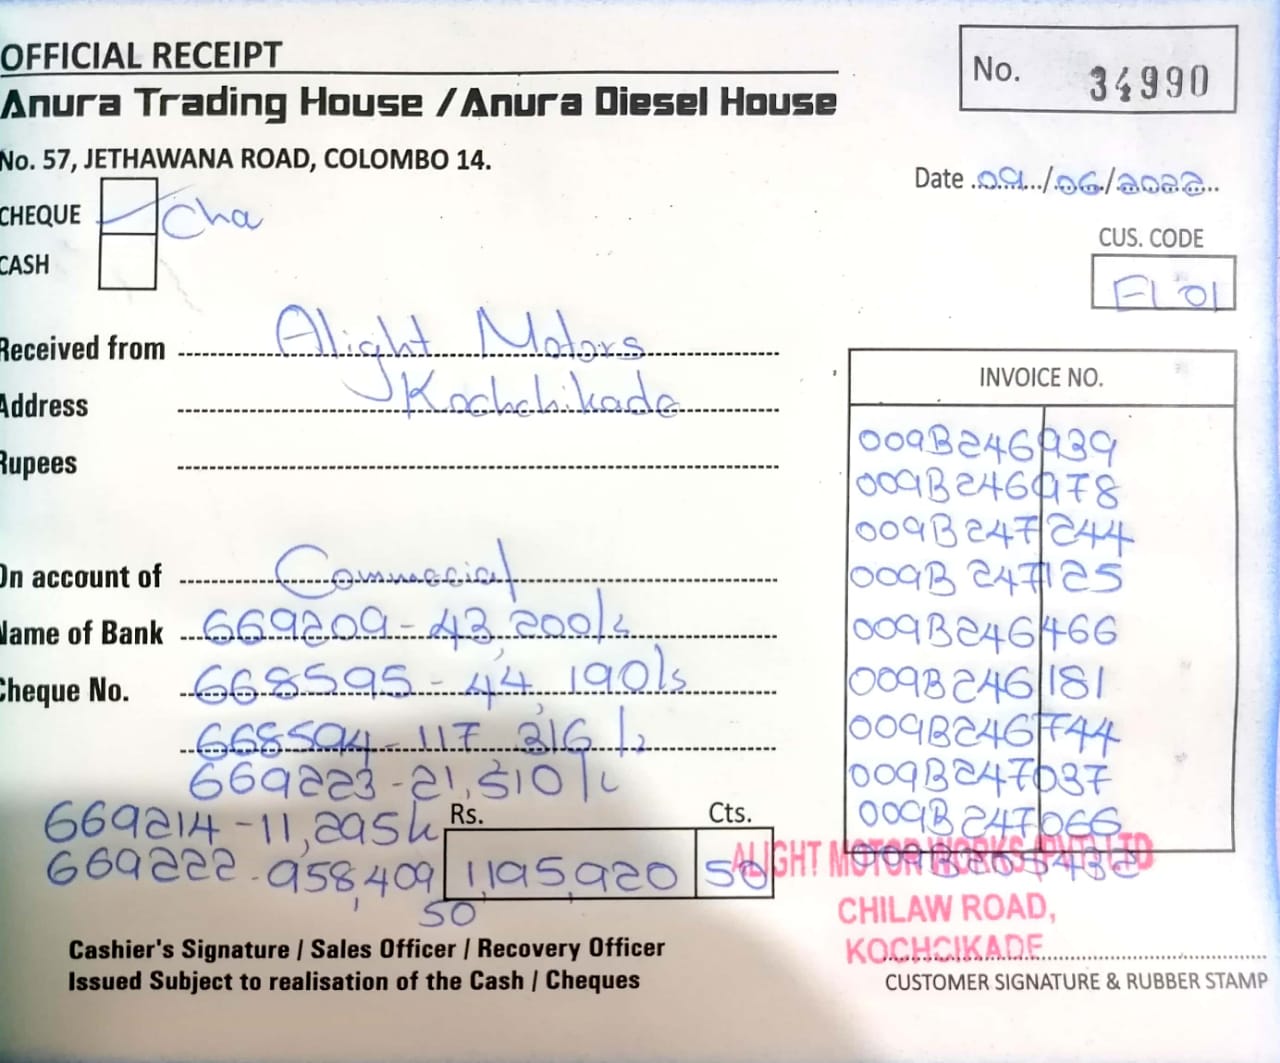 OFFICIAL RECEIPT
No. 34990
Anura Trading House / Anura Diesel House
No. 57, JETHAWANA ROAD, COLOMBO 14.
Date 09/06/2022
CHEQUE Cha
CASH
CUS. CODE
Received from Alight Motors
Address Kochchikade
Rupees
On account of Commecial
Name of Bank 669209 - 43,200/-
Cheque No. 668595 - 44,190/-
668594 - 117,316/-
669223 - 21,510/-
669214 - 11,295/-
669222 - 958,409
50
Rs. Cts.
1,195,920 50
INVOICE NO.
009B246939
009B246978
009B247244
009B247125
009B246466
009B246181
009B246744
009B247037
009B247066
ALIGHT MOTOR WORKS (PVT) LTD
CHILAW ROAD,
KOCHCIKADE
Cashier's Signature / Sales Officer / Recovery Officer
Issued Subject to realisation of the Cash / Cheques
CUSTOMER SIGNATURE & RUBBER STAMP